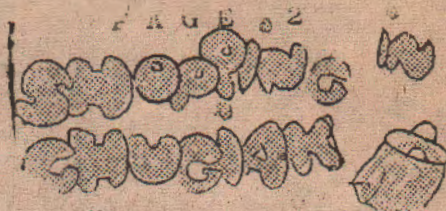 PAGE 2
SHOPPING IN
CHUGIAK